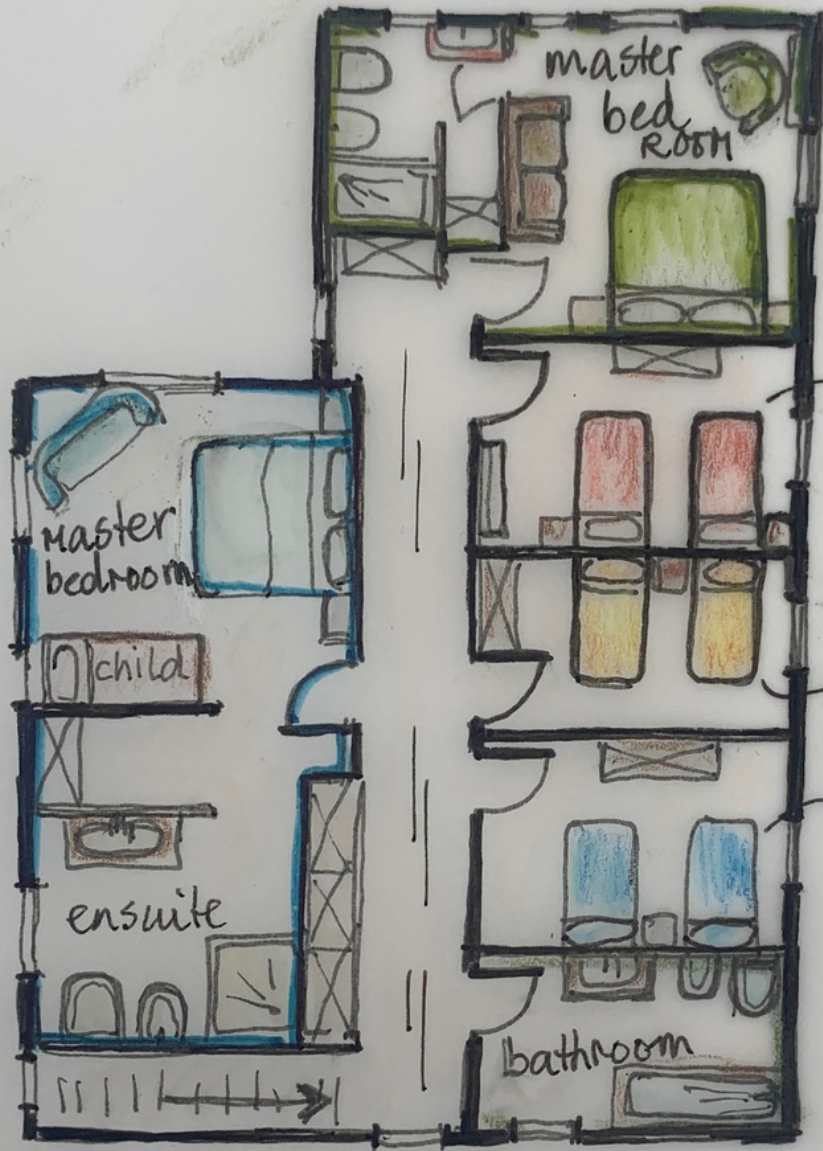 master
bed
ROOM
Master
bedroom
child
ensuite
bathroom